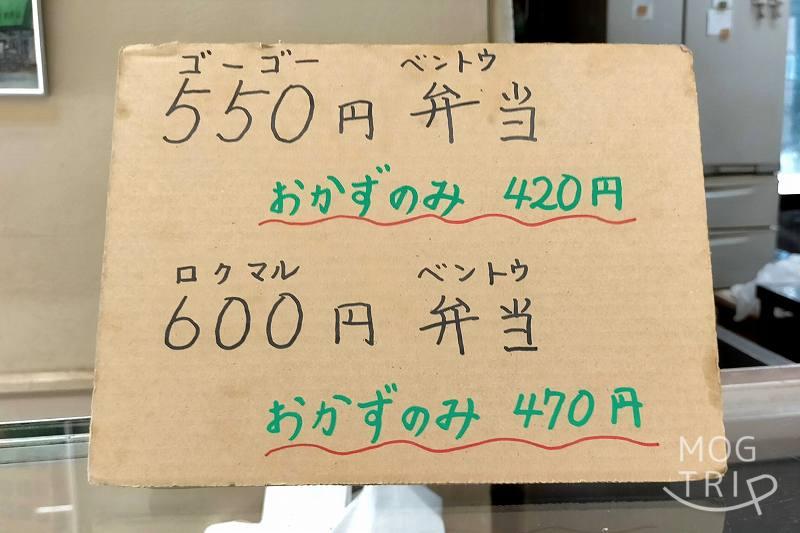 ゴーゴー ベントウ
550円 弁当
おかずのみ 420円
ロクマル ベントウ
600円 弁当
おかずのみ 470円
MOG
TRIP